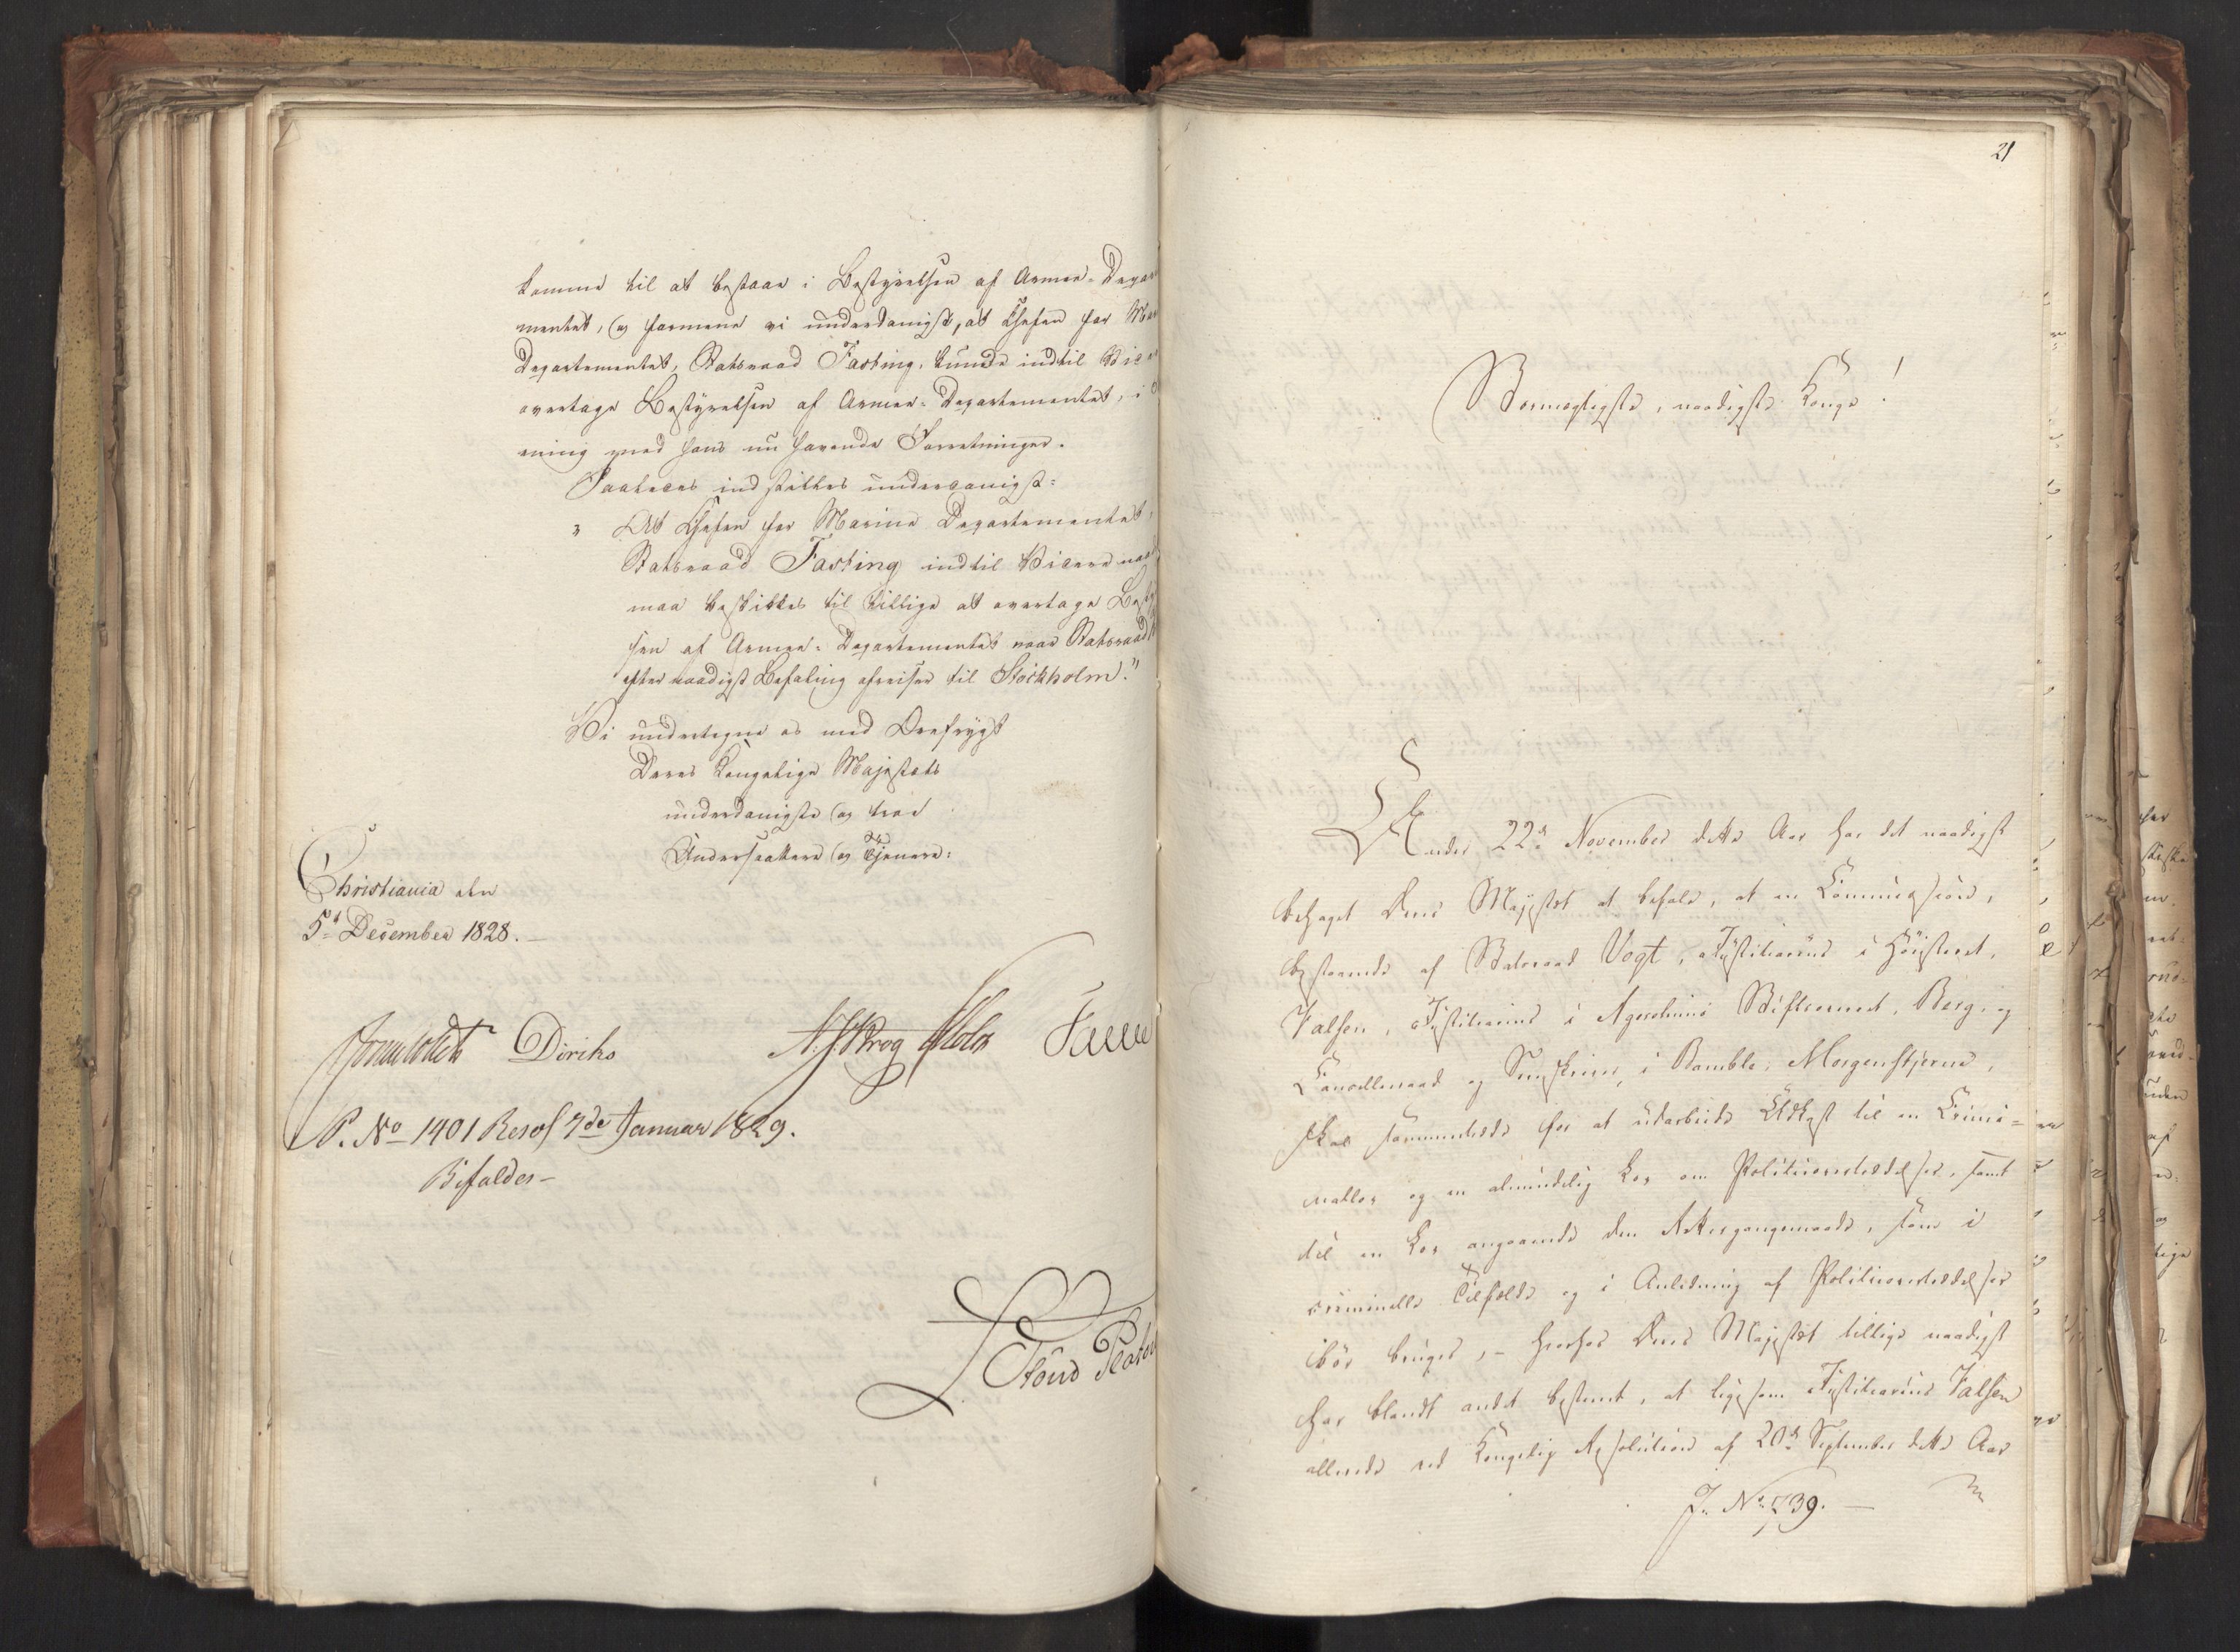 komme til at bestaae i Bestyrelsen af Armee-Depar
mentet, og formene vi underdanigst, at Chefen for Mar
Departementet, Statsraad Fasting, kunde indtil Vid
overtage Bestyrelsen af Armee-Departementet, i
ening med hans nu havende Forretninger.
Saaledes indstilles underdanigst:
" At Chefen for Marine Departementet,
Statsraad Fasting indtil Videre naad
maa beskikkes til tillige at overtage Besty
sen af Armee-Departementet naar Statsraad
efter naadigst Befaling afreiser til Stockholm."
Vi undertegne os med Ærefrygt
Deres Kongelige Majestæts
underdanigste og troe
Undersaattere og Tjenere:
Christiania den
5te December 1828.
Diriks
P. No 1401 Resol 7de Januar 1829.
Bifaldes-
21
Stormægtigste, naadigste Konge!
Under 22de November dette Aar har det naadigst
behaget Deres Majestæt at befale, at en Commission,
bestaaende af Statsraad Vogt, Justitiarius i Høiesteret,
Falsen, Justitiarius i Agershuus Stiftsoverret, Berg, og
Cancelliraad og Sorenskriver i Bamble, Morgenstjerne,
skal sammentræde for at udarbeide Udkast til en Crimi=
nallov og en almindelig Lov om Politieovertrædelser, samt
til en Lov angaaende den Rettergangsmaade, som i
criminelle Tilfælde og i Anledning af Politieovertrædelser
bør bruges, - hvorhos Deres Majestæt tillige naadigst
har blandt andet bestemt, at ligesom Justitiarius Falsen
allerede ved Kongelig Resolution af 20de September dette Aar
J. No 739.